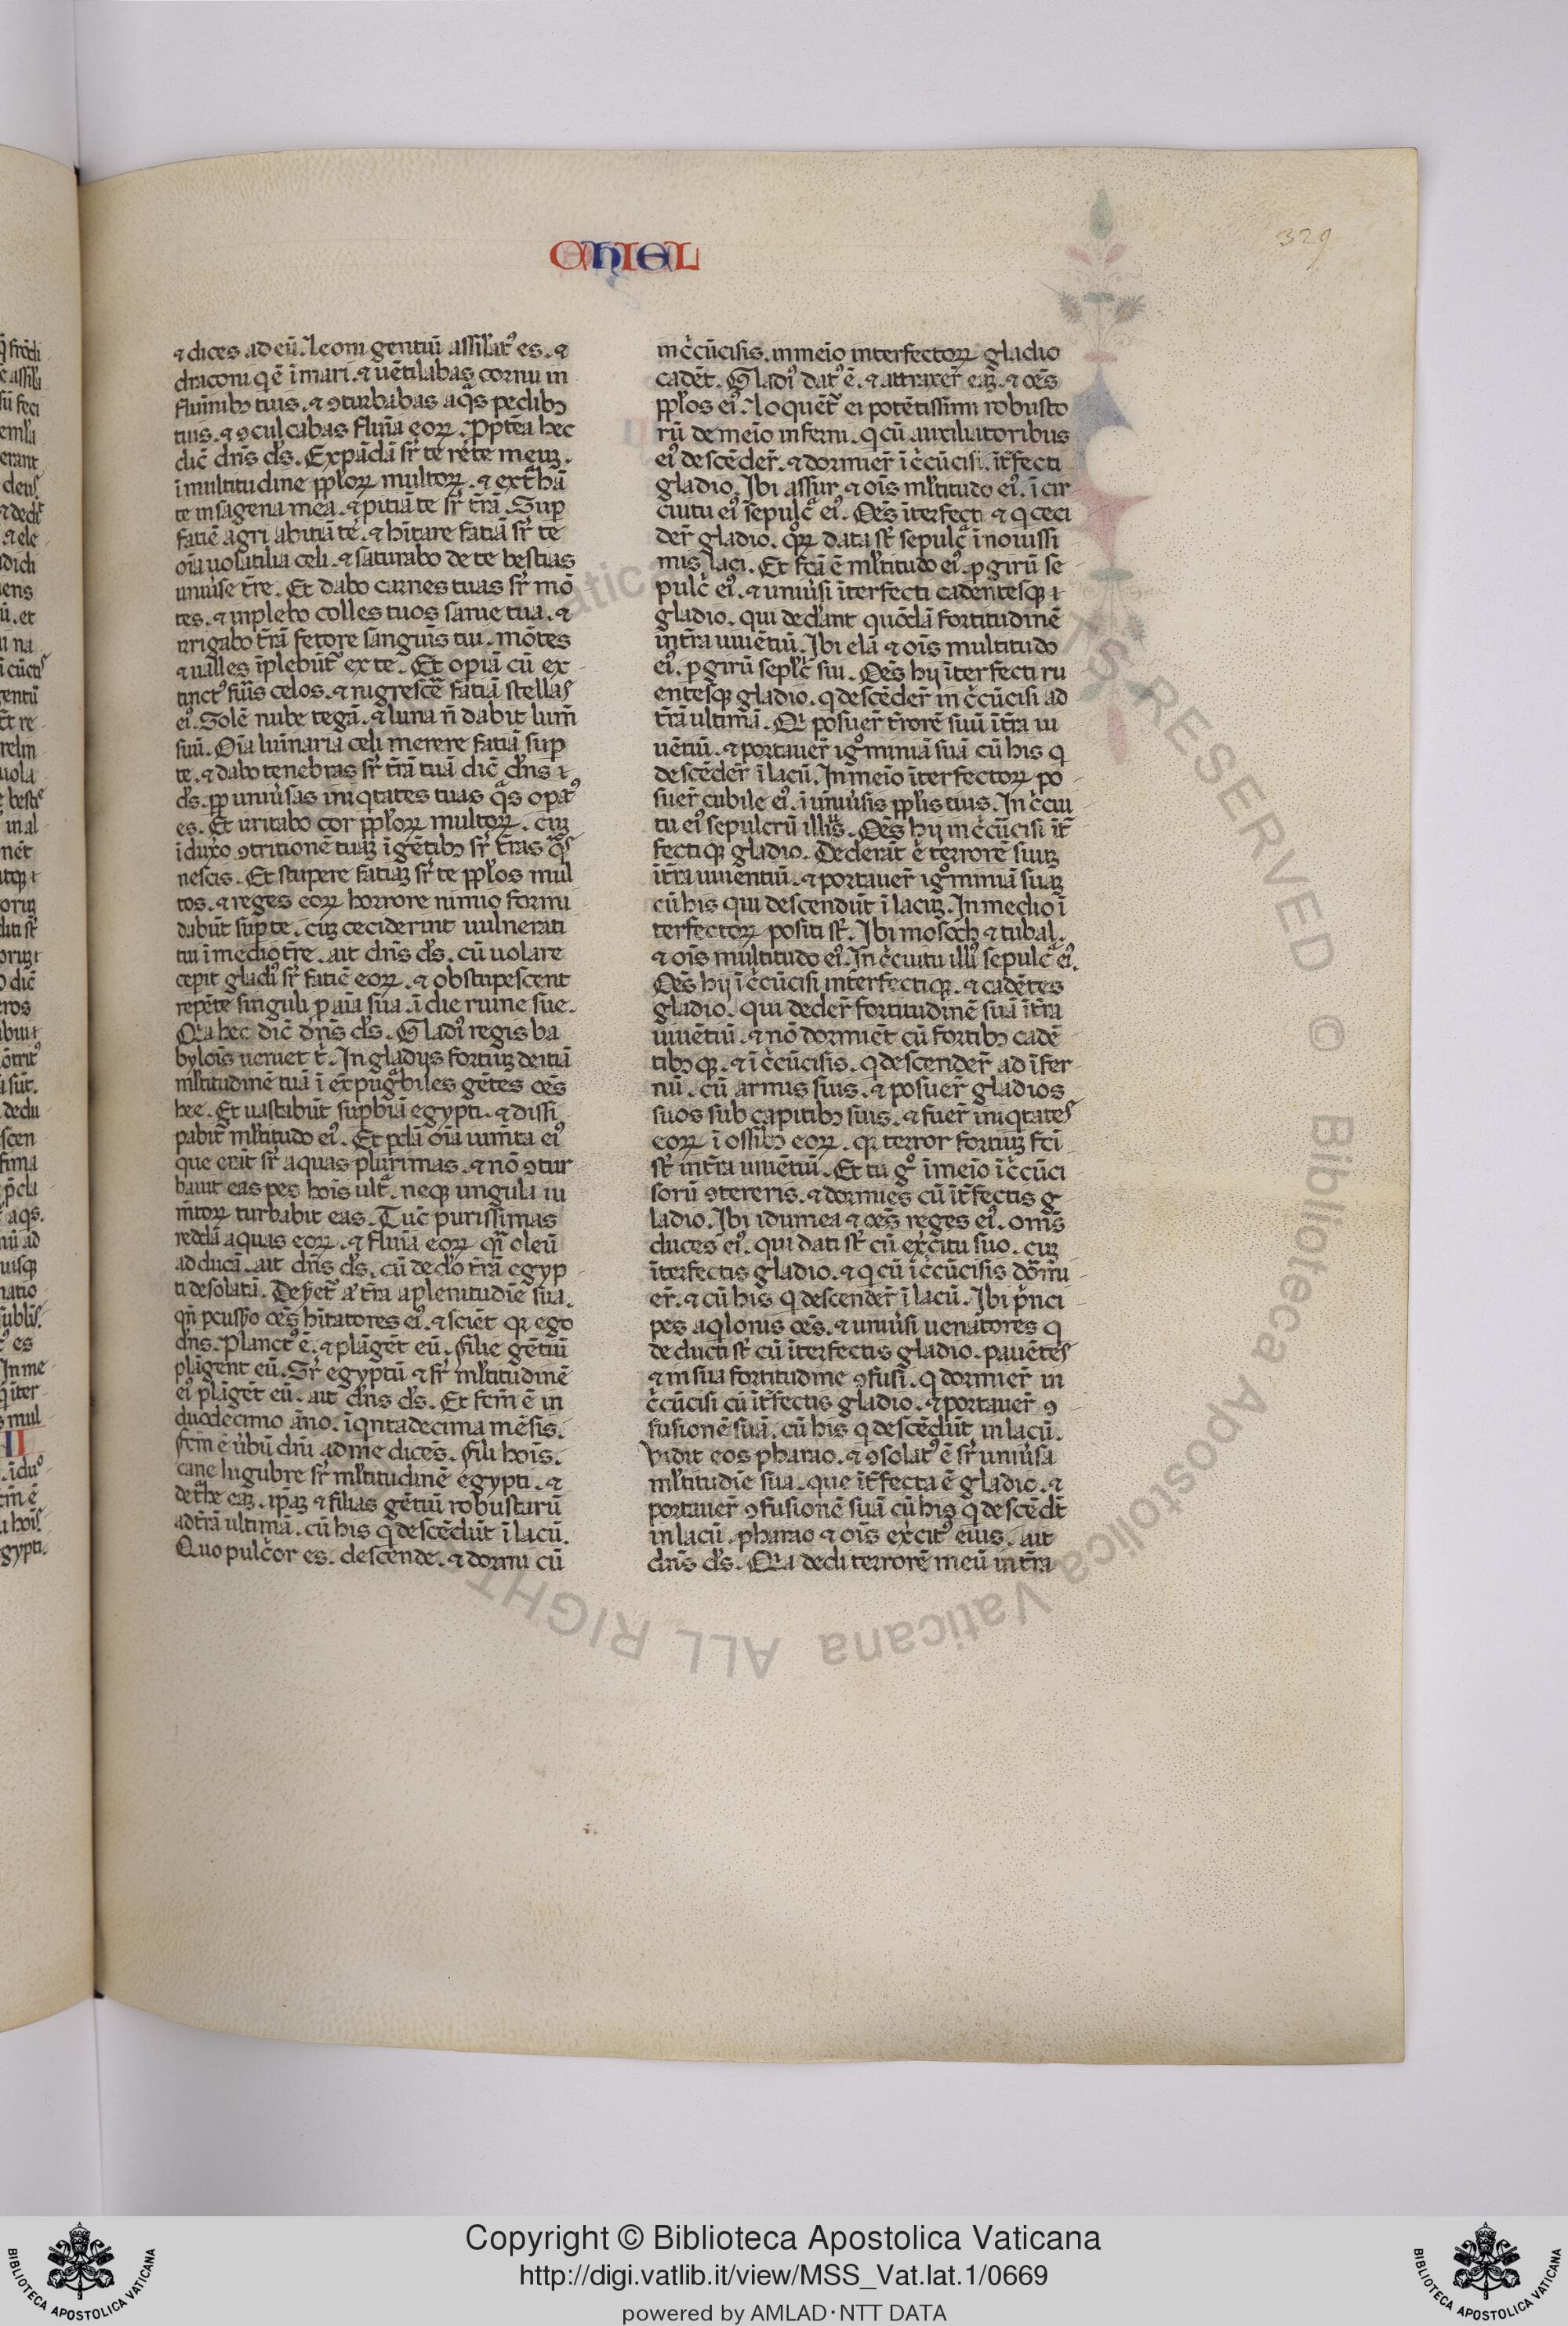 CHIEL
329
⁊ dices ad eū. Leoni gentiū assil̄at᷒ es. ⁊
draconi q̇ ē ī mari. ⁊ uētilabas cornu in
flumībꝫ tuis. ⁊ ꝯturbabas aq̄s pedibꝫ
tuis. ⁊ ꝯculcabas flūia eoꝝ. Ꝓptēa hec
dic̄ dn̄s ds̄. Expādā sr̄ te rēte meuꝫ.
ī multitudine ppl̄oꝝ multoꝝ. ⁊ ext̄hā
te in sagena mea. ⁊ ꝓitiā te sr̄ t̄rā. Suꝑ
fatiē agri abitiā te. ⁊ hītare fatiā sr̄ te
oīa uolatilia celi. ⁊ saturabo de te bestias
uniūse t̄re. Et dabo carnes tuas sr̄ mō
tes. ⁊ inplebo colles tuos sanie tua. ⁊
irrigabo t̄rā fetore sanguīs tui. mōtes
⁊ ualles īplebūt᷒ ex te. Et opiā cū ex
tinct᷒ fūis celos. ⁊ nigrescē fatiā stellas
ei᷒. Solē nube tegā. ⁊ luna n̄ dabit lum̄
suū. Oīa luīnaria celi merere fatiā suꝑ
te. ⁊ dabo tenebras sr̄ t̄rā tuā dic̄ dn̄s ⁊
ds̄. ꝓp uniūsas iniq̇tates tuas q̄s opat᷒
es. Et irritabo cor ppl̄oꝝ multoꝝ. cuꝫ
īduxo ꝯtritionē tuaꝫ ī gētibꝫ sr̄ t̄ras q̄s
nescis. Et stupere fatiaꝫ sr̄ te ppl̄os mul
tos. ⁊ reges eoꝝ horrore nimio formi
dabūt suꝑ te. cuꝫ ceciderint uulnerati
tui ī medio t̄re. ait dn̄s ds̄. cū uolare
cepit gladi᷒ sr̄ fatiē eoꝝ. ⁊ obstupescent
repēte singuli ꝓ aīa sua. ī die ruine sue.
Qꝛa hec dic̄ dn̄s ds̄. Gladi᷒ regis ba
bylōis ueniet t̄. In gladijs fortiuꝫ deitiā
ml̄titudinē tuā ī expug̈biles gētes oēs
hee. Et uastabūt suꝑbiā egypti. ⁊ dissi
pabit᷒ ml̄titudo ei᷒. Et ꝑdā oīa ium̄ta ei᷒
que erāt sr̄ aquas plurimas. ⁊ nō ꝯtur
bauit eas pes hoīs ult᷒. neqꝫ ungula iu
m̄toꝝ turbabit eas. Tūc purissimas
reddā aquas eoꝝ. ⁊ flūia eoꝝ q̄i oleū
adducā. ait dn̄s ds̄. cū dedo t̄rā egyp
ti desolatā. Deset᷒ a᷒ t̄ra a plenitudīe sua.
qn̄ ꝑcusso oēs hītatores ei᷒. ⁊ sciēt qꝛ ego
dn̄s. Planct᷒ ē. ⁊ plāgēt eū. filie gētiū
plāgent eū. Sr̄ egyptū ⁊ sr̄ ml̄titudinē
ei᷒ plāgēt eū. ait dn̄s ds̄. Et fcm̄ ē in
duodecimo āno. īq̇ntadecima mēsis.
fcm̄ ē ūbū dn̄i ad me dicēs. fili hoīs.
cane lugubre sr̄ ml̄titudinē egypti. ⁊
det᷒he eaꝫ. ip̄aꝫ ⁊ filias gētiū robustarū
ad t̄rā ultimā. cū his q̇ descēdūt ī lacū.
Quo pulc̄or es. descende. ⁊ dormi cū
inc̄cūcisis. in meīo interfectoꝝ gladio
cadēt. Gladi᷒ dat᷒ ē. ⁊ attraxer̄ eaꝫ. ⁊ oēs
ppl̄os ei᷒. Loquēt᷒ ei potētissimi robusto
rū de meīo inferni. q̇ cū auxiliatoribus
ei᷒ descēder̄. ⁊ dormier̄ ī c̄cūcisi. īt̄fecti
gladio. Ibi assur. ⁊ oīs ml̄titudo ei᷒. ī cir
cuitu ei᷒ sepulc̄ ei᷒. Oēs īterfecti ⁊ q̇ ceci
der̄ gladio. q̇ꝝ data st̄ sepulc̄ ī nouissi
mis laci. Et fcā ē ml̄titudo ei᷒. ꝑ girū se
pulc̄ ei᷒. ⁊ uniūsi īterfecti cadentesqꝫ ⁊
gladio. qui ded̄ant quōdā fortitudinē
int̄ra uiuētiū. Ibi elā ⁊ oīs multitudo
ei᷒. ꝑ girū sepl̄c̄ sui. Oēs hij īterfecti ru
entesqꝫ gladio. q̇ descēder̄ in c̄cūcisi ad
t̄rā ultimā. Qꝛ posuer̄ t̄rorē suū īt̄ra ui
uētiū. ⁊ portauer̄ igͦminiā suā cū his q̇
descēder̄ ī lacū. In meīo īterfectoꝝ po
suer̄ cubile ei᷒. ī uniūsis ppl̄is tuis. In c̄cui
tu ei᷒ sepulcrū illi᷒. Oēs hij in c̄cūcisi īt̄
fectiqꝫ gladio. Dederāt ē terrorē suuꝫ
īt̄ra uiuentiū. ⁊ portauer̄ igͦminiā suaꝫ
cū his qui descendūt ī lacuꝫ. In medio ī
terfectoꝝ positi st̄. Ibi mosoch ⁊ tubal.
⁊ oīs multitudo ei᷒. In c̄cuitu illi᷒ sepulc̄ ei᷒.
Oēs hij ī c̄cūcisi interfectiqꝫ. ⁊ cadētes
gladio. qui deder̄ fortitudinē suā īt̄ra
uiuētiū. ⁊ nō dormiēt cū fortibꝫ cadē
tibꝫqꝫ. ⁊ ī c̄cūcisis. q̇ descender̄ ad īfer
nū. cū armis suis. ⁊ posuer̄ gladios
suos sub capitibꝫ suis. ⁊ fuer̄ iniq̇tates
eoꝝ ī ossibꝫ eoꝝ. qꝛ terror fortiuꝫ fcī
st̄ int̄ra uiuētiū. Et tu gͦ ī meīo ī c̄cūci
sorū ꝯtereris. ⁊ dormies cū īt̄fectis g
ladio. Ibi idumea ⁊ oēs reges ei᷒. om̄s
duces ei᷒. qui dati st̄ cū exc̄itu suo. cuꝫ
īterfectis gladio. ⁊ q̇ cū ī c̄cūcisis dōrmi
er̄. ⁊ cū his q̇ descender̄ ī lacū. Ibi p̄nci
pes aq̇lonis oēs. ⁊ uniūsi uenatores q̇
deducti st̄ cū īterfectis gladio. pauētes
⁊ in sua fortitudine ꝯfusi. q̇ dormier̄ in
c̄cūcisi cū īt̄fectis gladio. ⁊ portauer̄ ꝯ
fusionē suā. cū his q̇ descēdūt in lacū.
Vidit eos pharao. ⁊ ꝯsolat᷒ ē sr̄ uniūsa
ml̄titudīe sua. que īt̄fecta ē gladio. ⁊
portauer̄ ꝯfusionē suā cū his q̇ descēdt̄
in lacū. pharao ⁊ oīs exercit᷒ eius. ait
dn̄s ds̄. Qꝛa dedi terrorē meū int̄ra
Copyright © Biblioteca Apostolica Vaticana
http://digi.vatlib.it/view/MSS_Vat.lat.1/0669
powered by AMLAD·NTT DATA
BIBLIOTECA APOSTOLICA VATICANA
BIBLIOTECA APOSTOLICA VATICANA
© Biblioteca Apostolica Vaticana ALL RIGHTS RESERVED